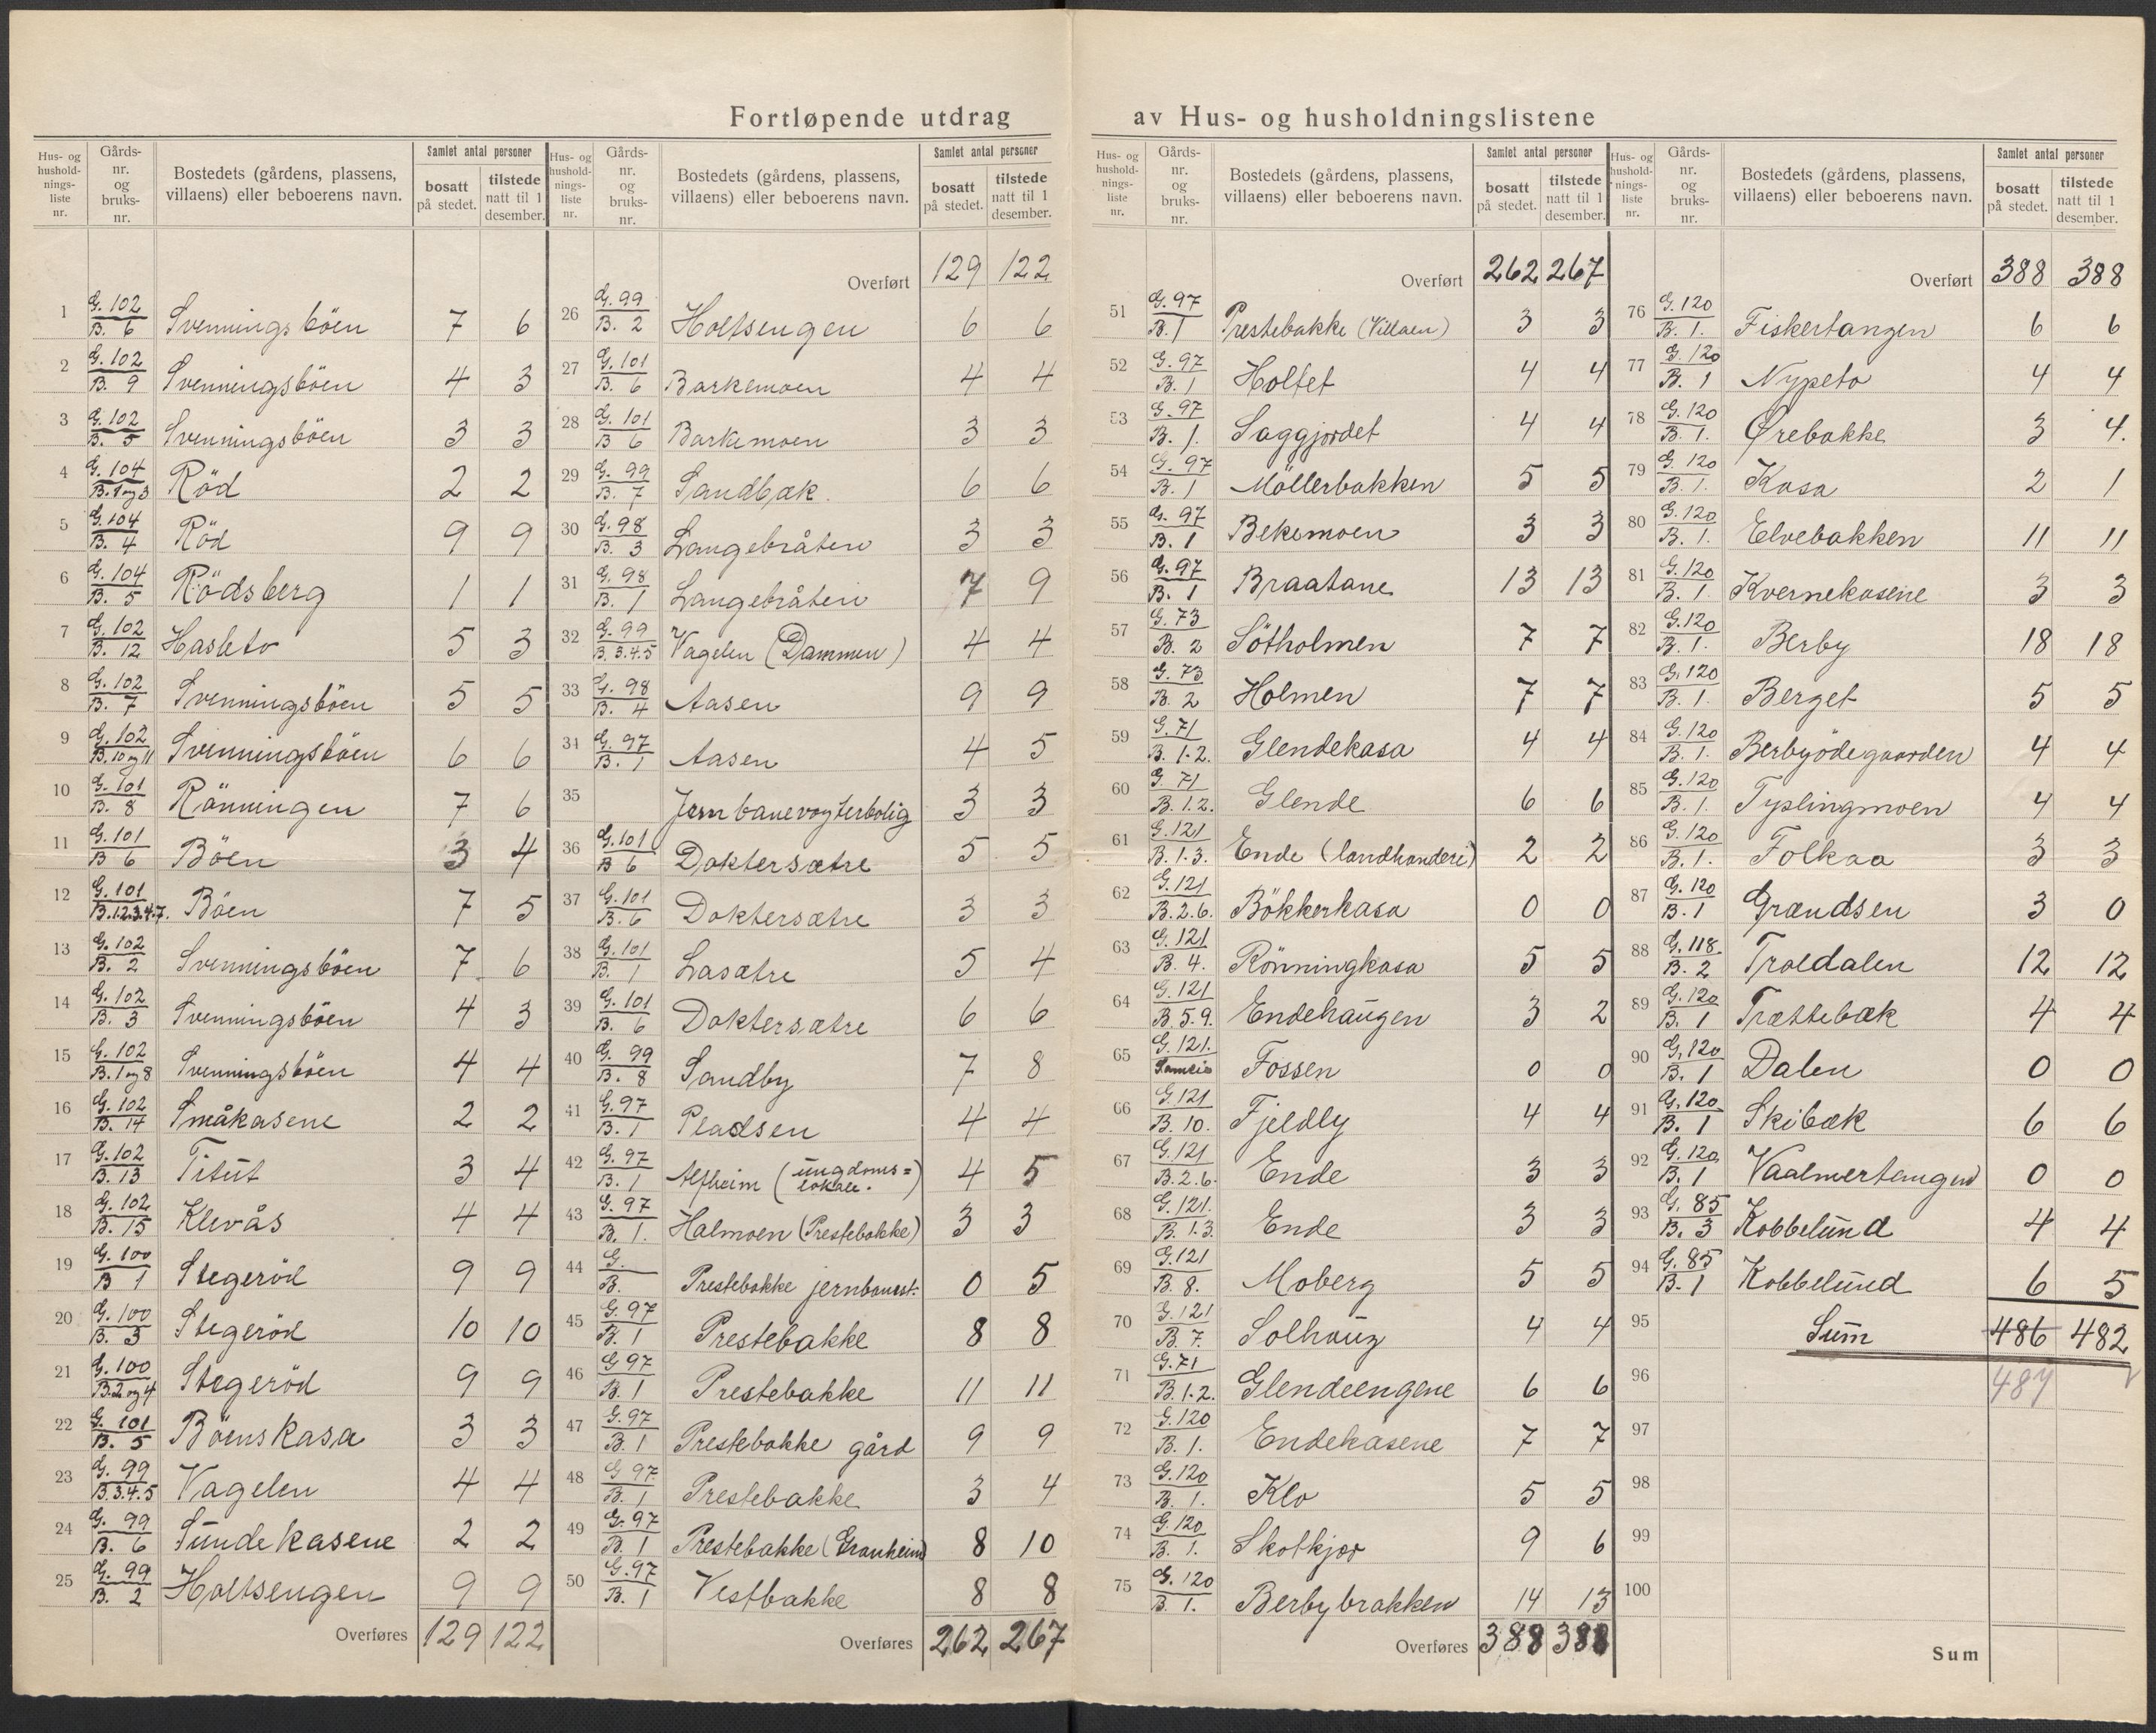 Fortløpende utdrag av Hus- og husholdningslistene
Hus- og husholdnings-liste nr. | Gårds-nr. og bruks-nr. | Bostedets (gårdens, plassens, villaens) eller beboerens navn. | Samlet antal personer: bosatt på stedet. | tilstede natt til 1 desember.
1 G. 102 B. 6 Svenningsböen 7 6
2 G. 102 B. 9 Svenningsböen 4 3
3 G. 102 B. 5 Svenningsböen 3 3
4 G. 104 B. 1 og 3 Röd 2 2
5 G. 104 B. 4 Röd 9 9
6 G. 104 B. 5 Rödsberg 1 1
7 G. 102 B. 12 Hasleto 5 3
8 G. 102 B. 7 Svenningsböen 5 5
9 G. 102 B. 10 og 11 Svenningsböen 6 6
10 G. 101 B. 8 Rönningen 7 6
11 G. 101 B 6 Böen 3 4
12 G. 101 B. 1.2.3.4.7. Böen 7 5
13 G. 102 B. 2 Svenningsböen 7 6
14 G. 102 B. 3 Svenningsböen 4 3
15 G. 102 B. 1 og 8 Svenningsböen 4 4
16 G. 102 B. 14 Småkasene 2 2
17 G. 102 B. 13 Titut 3 4
18 G. 102 B. 15 Klevås 4 4
19 G. 100 B 1 Stegeröd 9 9
20 G. 100 B. 3 Stegeröd 10 10
21 G. 100 B. 2 og 4 Stegeröd 9 9
22 G. 101 B. 5 Böenskasa 3 3
23 G. 99 B. 3.4.5 Vagelen 4 4
24 G. 99 B. 6 Sundekasene 2 2
25 G. 99 B. 2 Holtsengen 9 9
Overføres 129 122
Hus- og husholdnings-liste nr. | Gårds-nr. og bruks-nr. | Bostedets (gårdens, plassens, villaens) eller beboerens navn. | Samlet antal personer: bosatt på stedet. | tilstede natt til 1 desember.
Overført 129 122
26 G. 99 B. 2 Holtsengen 6 6
27 G. 101 B. 6 Barkemoen 4 4
28 G. 101 B 6 Barkemoen 3 3
29 G. 99 B. 7 Sandbæk. 6 6
30 G. 98 B. 3 Langebråten 3 3
31 G. 98 B. 1 Langebråten 7 9
32 G. 99 B. 3.4.5 Vagelen (Dammen) 4 4
33 G. 98 B. 4 Aasen 9 9
34 G. 97 B. 1 Aasen 4 5
35 Jernbanevogterbolig 3 3
36 G. 101 B 6 Doktersætre 5 5
37 G. 101 B. 6 Doktersætre 3 3
38 G. 101 B. 1 Lasætre 5 4
39 G. 101 B. 6 Doktersætre 6 6
40 G. 99 B. 8 Sandby 7 8
41 G. 97 B. 1 Pladsen 4 4
42 G. 97 B. 1 Alfheim (ungdoms=lokale.) 4 5
43 G. 97 B. 1. Halmoen (Prestebakke) 3 3
44 G. B. Prestebakke jernbanest. 0 5
45 G. 97 B. 1 Prestebakke 8 8
46 G 97 B. 1 Prestebakke 11 11
47 G. 97 B. 1 Prestebakke gård 9 9
48 G 97 B. 1 Prestebakke 3 4
49 G. 97 B. 1 Prestebakke (Granheim) 8 10
50 G. 97 B. 1 Vestbakke 8 8
Overføres 262 267
Hus- og husholdnings-liste nr. | Gårds-nr. og bruks-nr. | Bostedets (gårdens, plassens, villaens) eller beboerens navn. | Samlet antal personer: bosatt på stedet. | tilstede natt til 1 desember.
Overført 262 267
51 G. 97 B. 1 Prestebakke (Villaen) 3 3
52 G. 97 B. 1 Holtet 4 4
53 G. 97 B. 1. Saggjordet 4 4
54 G. 97 B. 1 Möllerbakken 5 5
55 G. 97 B. 1 Bekemoen 3 3
56 G. 97 B. 1 Braatane 13 13
57 G. 73 B. 2 Sötholmen 7 7
58 G. 73 B. 2 Holmen 7 7
59 G. 71 B. 1.2. Glendekasa 4 4
60 G 71 B. 1.2. Glende 6 6
61 G. 121 B. 1.3. Ende (landhanderi) 2 2
62 G. 121 B. 2.6. Bökkerkasa 0 0
63 G. 121 B. 4. Rönningkasa 5 5
64 G. 121 B. 5.9. Endehaugen 3 2
65 G. 121. Fossen 0 0
66 G. 121 B. 10. Fjeldly 4 4
67 G. 121 B. 2.6. Ende 3 3
68 G. 121. B. 1.3. Ende 3 3
69 G. 121 B 8. Moberg 5 5
70 G. 121 B 7. Solhaug 4 4
71 G. 71 B. 1.2. Glendeengene 6 6
72 G. 120 B. 1. Endekasene 7 7
73 G. 120 B. 1. Klo 5 5
74 G. 120 B. 1. Skotkjær 9 6
75 G. 120 B. 1. Berbybrakken 14 13
Overføres 388 388
Hus- og husholdnings-liste nr. | Gårds-nr. og bruks-nr. | Bostedets (gårdens, plassens, villaens) eller beboerens navn. | Samlet antal personer: bosatt på stedet. | tilstede natt til 1 desember.
Overført 388 388
76 G. 120 B. 1. Fiskertangen 6 6
77 G. 120 B. 1 Nypeto 4 4
78 G. 120 B. 1. Ørebakke 3 4.
79 G. 120 B. 1. Kasa 2 1
80 G. 120 B. 1. Elvebakken 11 11
81 G. 120 B. 1. Kvernekasene 3 3
82 G. 120 B. 1. Berby 18 18
83 G. 120 B. 1. Berget 5 5
84 G. 120 B. 1. Berbyödegaarden 4 4
85 G. 120 B. 1. Tyslingmoen 4 4
86 G. 120 B. 1. Folkaa 3 3
87 G. 120 B. 1 Grændsen 3 0
88 G. 118. B. 2 Troldalen 12 12
89 G. 120 B. 1 Trættebæk 4 4
90 G. 120 B. 1 Dalen 0 0
91 G. 120 B. 1 Skibæk 6 6
92 G. 120 B. 1 Vaalmertangen 0 0
93 G. 85 B. 3 Kobbelund 4 4
94 G. 85 B. 1 Kobbelund 6 5
95 Sum 486 482
96 487
97
98
99
100
Sum